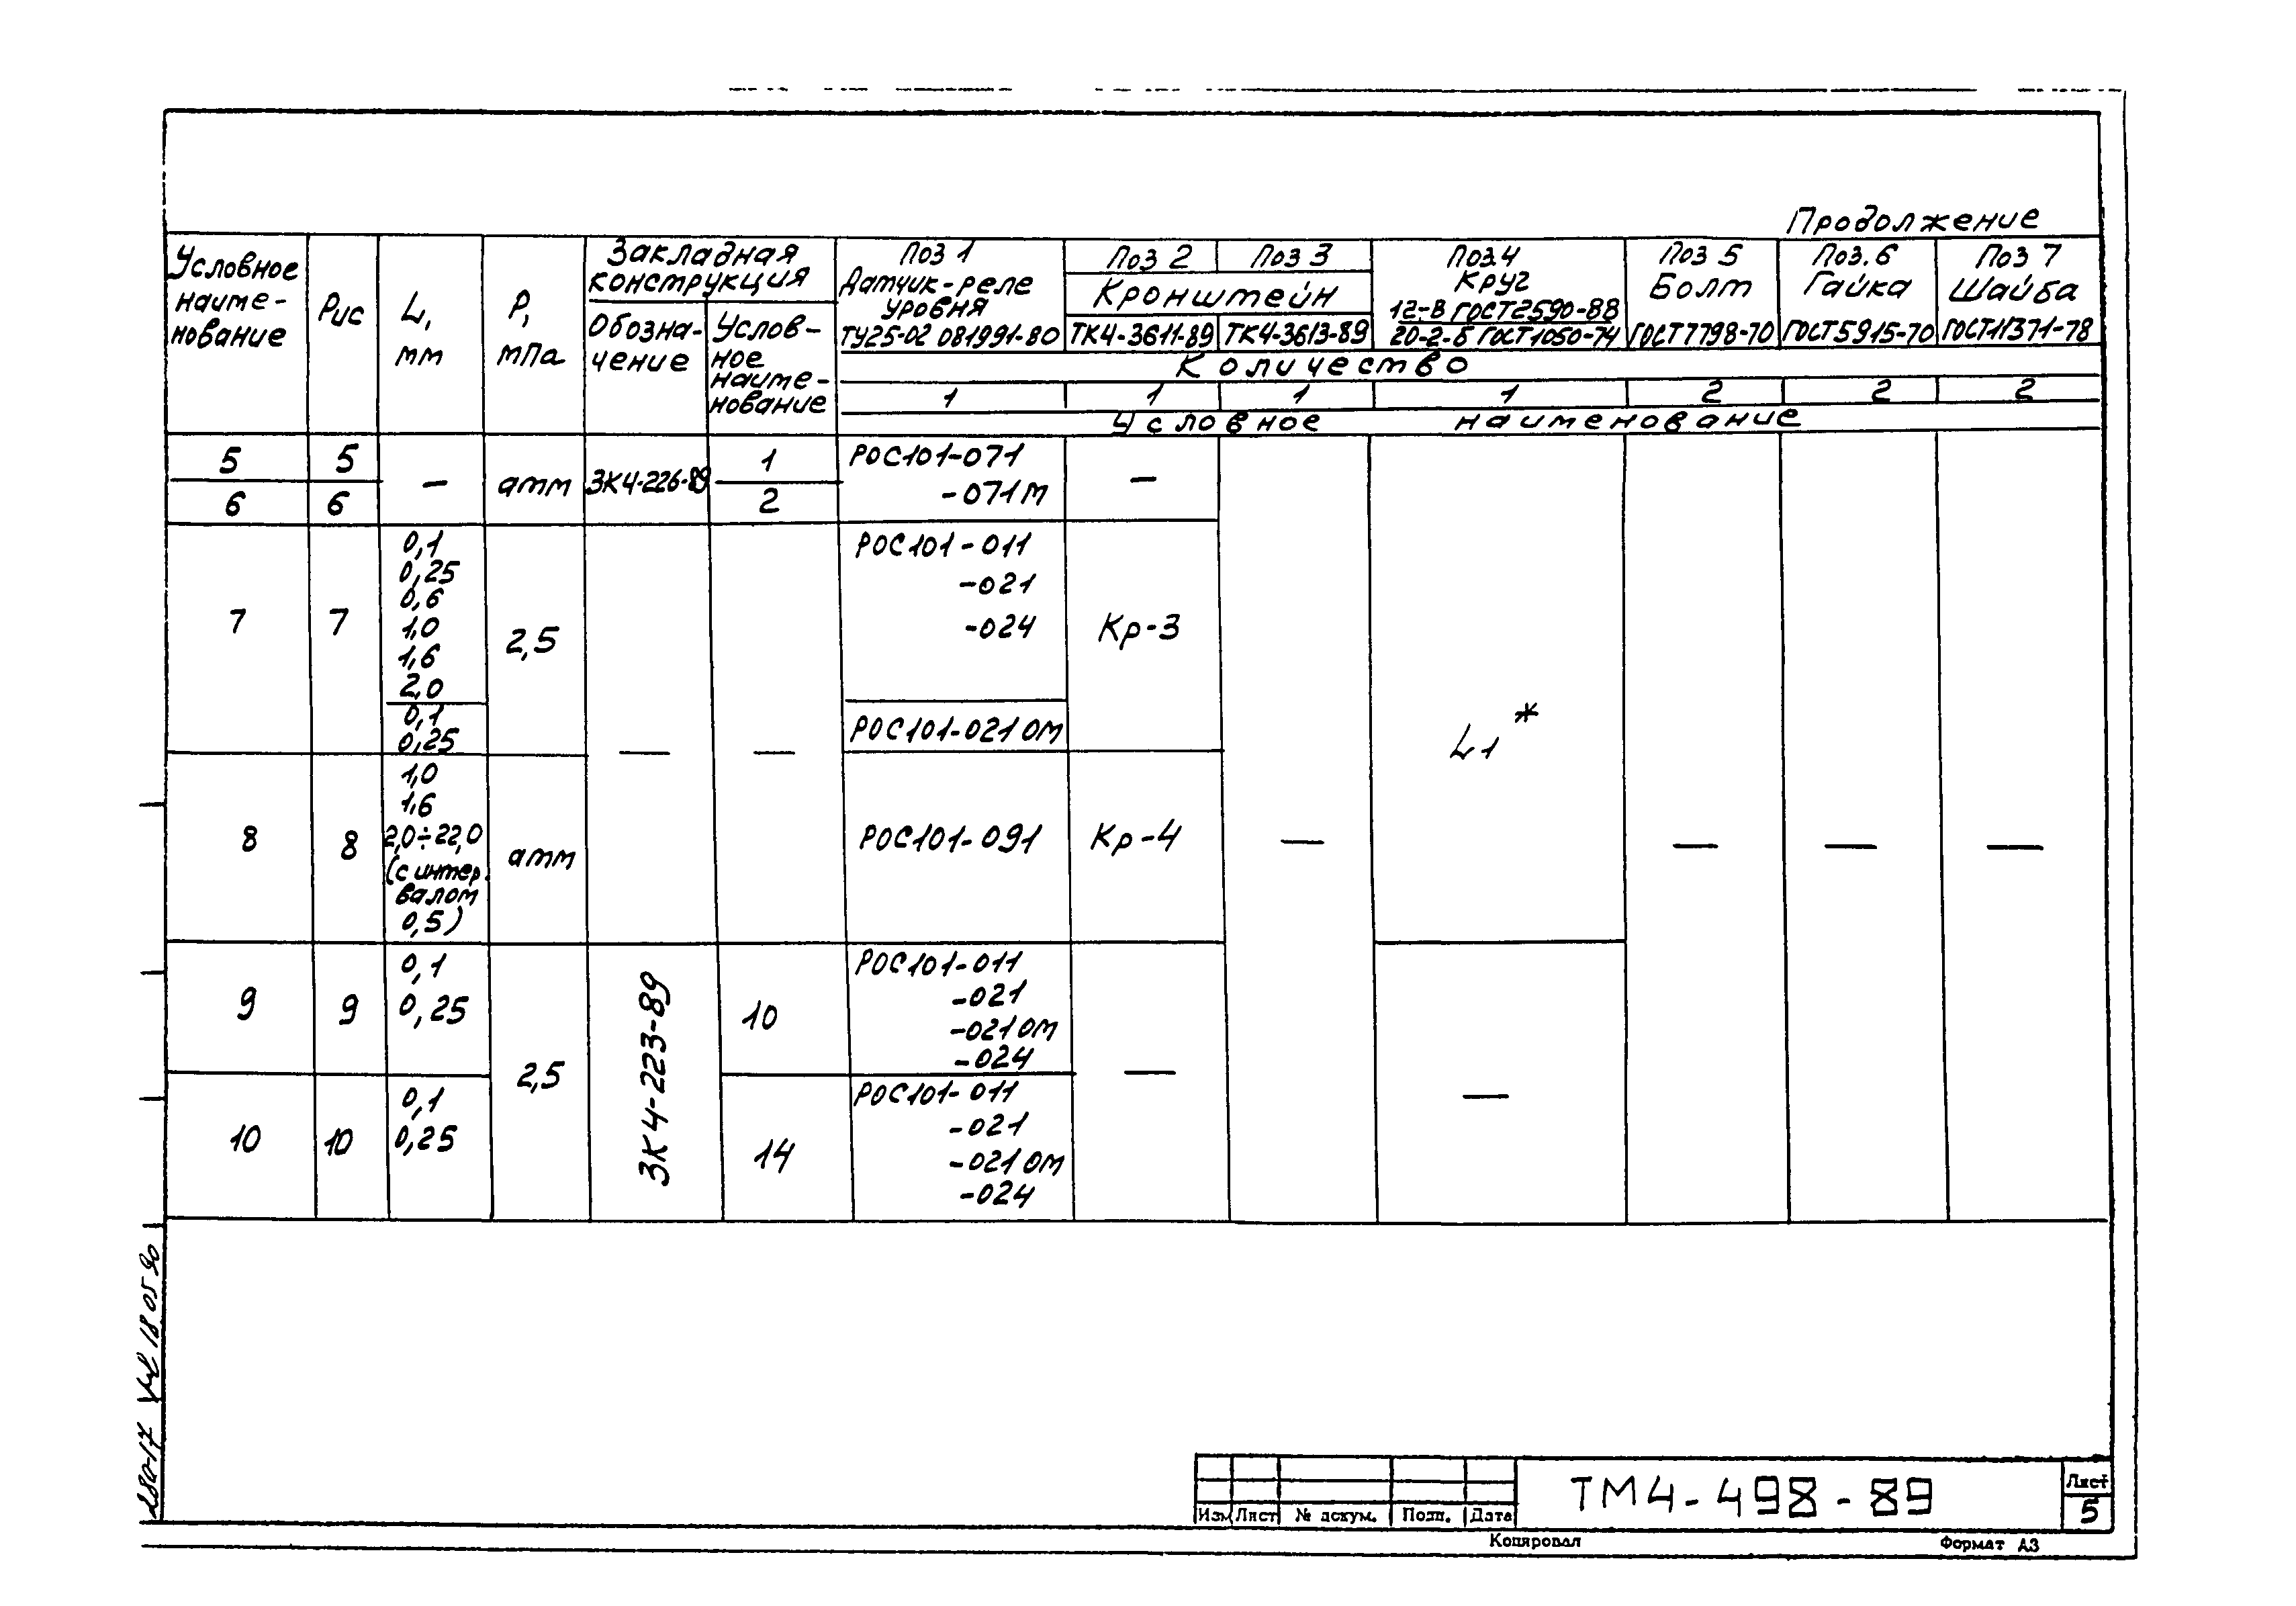 Продолжение
Условное наиме-нование
Рис
L, мм
Р, мПа
Закладная конструкция
Обозна-чение
Услов-ное наиме-нование
Поз 1
Датчик-реле уровня
ТУ25-02 081991-80
Поз 2
Поз 3
Кронштейн
ТК4-3611-89
ТК4-3613-89
Поз.4
Круг
12-В ГОСТ2590-88
20-2-б ГОСТ1050-74
Поз 5
Болт
ГОСТ7798-70
Поз.6
Гайка
ГОСТ5915-70
Поз 7
Шайба
ГОСТ11371-78
Количество
1 1 1 1 2 2 2
Условное наименование
5 5 — атм ЗК4-226-89 1 РОС101-071 —
6 6 2 -071М
7 7
0,1
0,25
0,6
1,0
1,6
2,0
0,1
0,25
2,5
РОС101-011
-021
-024
РОС101-021 ОМ
Кр-3
— —
L1*
8 8
1,0
1,6
2,0÷22,0
(с интер.
валом
0,5)
атм
РОС101-091
Кр-4
— — — —
9 9
0,1
0,25
2,5
ЗК4-223-89
10
РОС101-011
-021
-021 ОМ
-024
— —
10 10
0,1
0,25
14
РОС101-011
-021
-021 ОМ
-024
280-17
18 05 90
Изм Лист № докум. Подп. Дата
ТМ4-498-89
Лист
5
Копировал
Формат А3